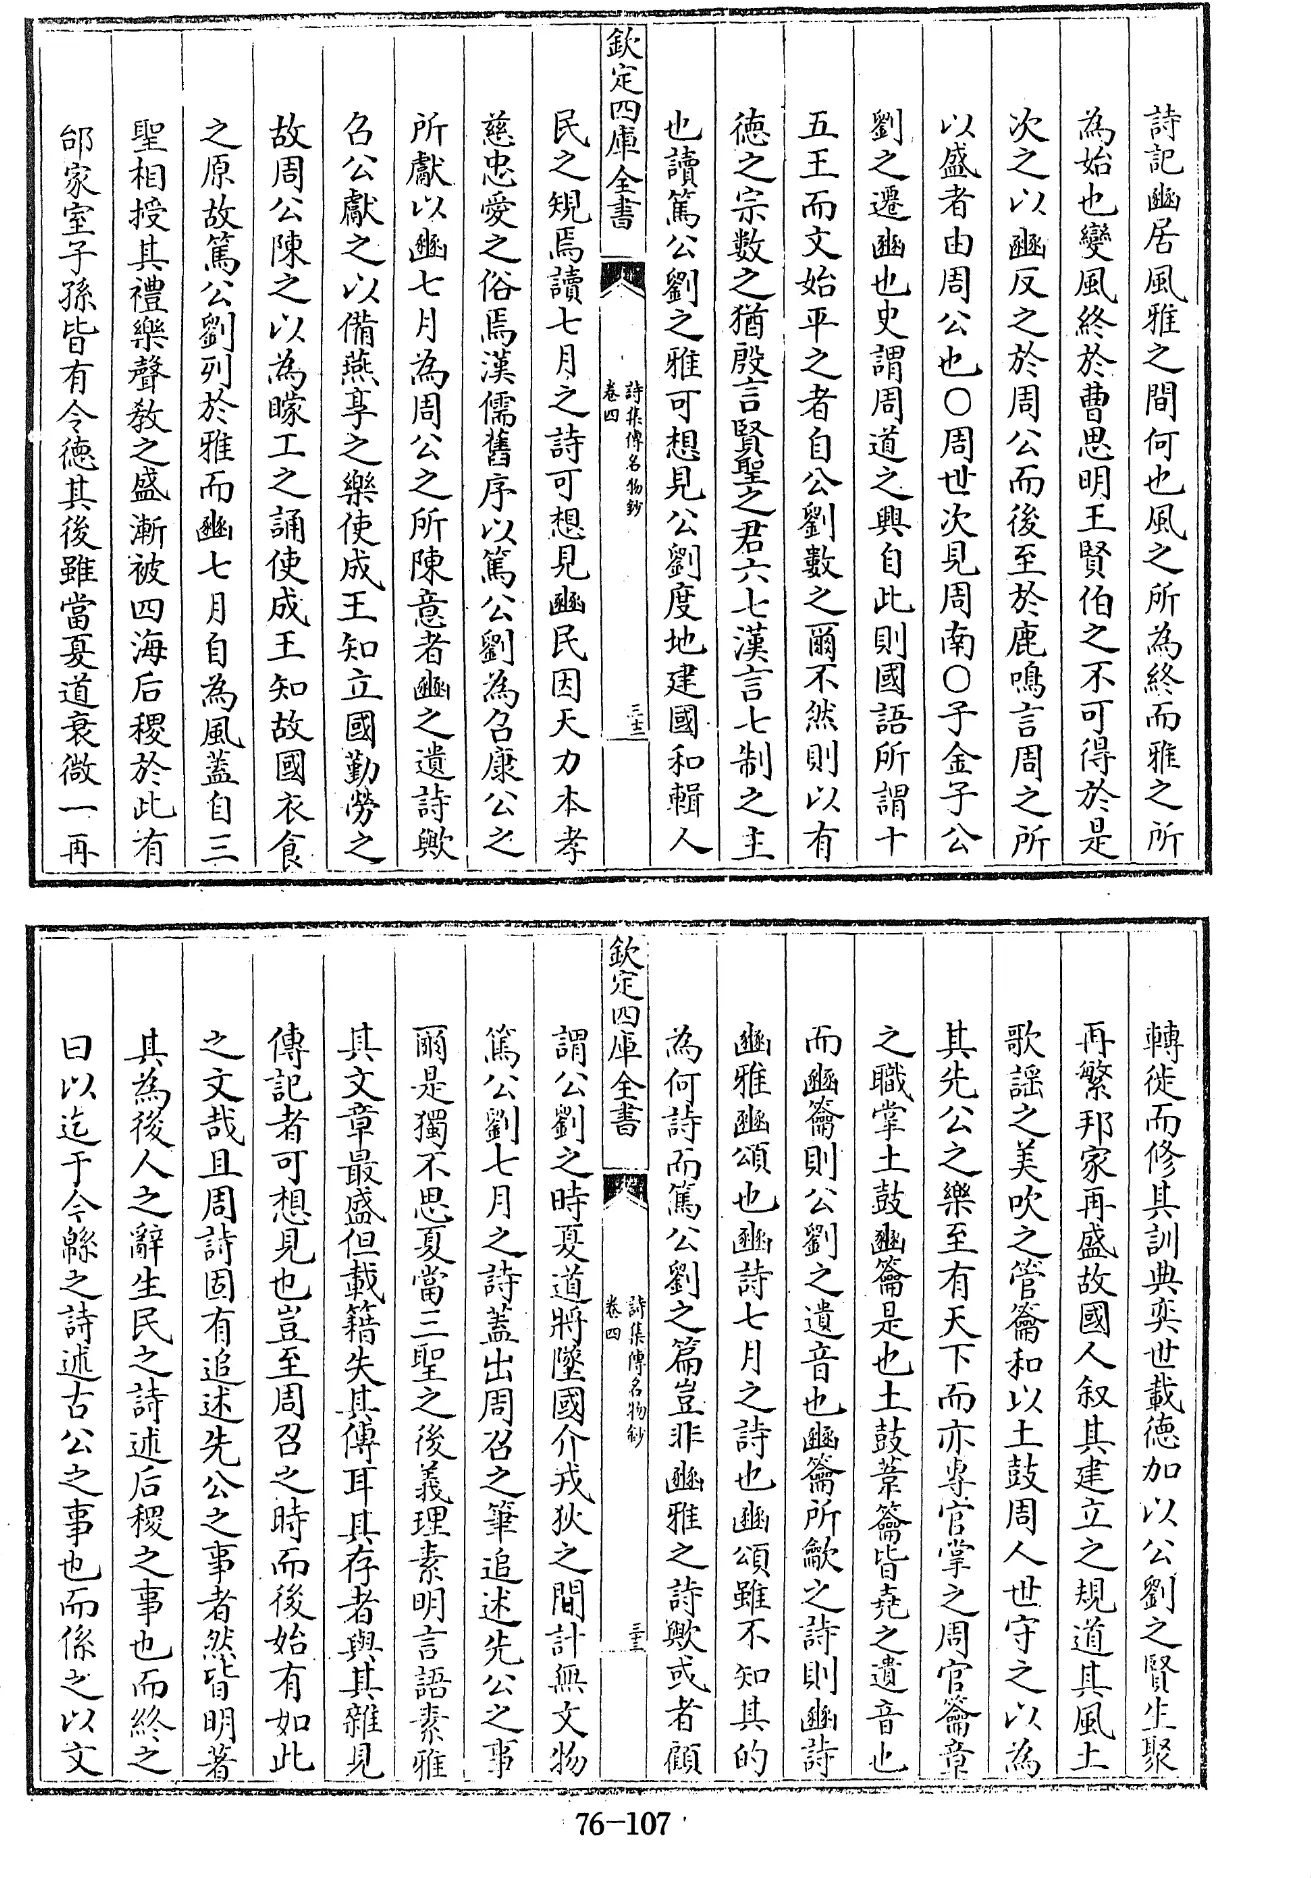 詩記豳居風雅之間何也風之所為終而雅之所
為始也變風終於曹思明王賢伯之不可得於是
次之以豳反之於周公而後至於鹿鳴言周之所
以盛者由周公也○周世次見周南○子金子公
劉之遷豳也史謂周道之興自此則國語所謂十
五王而文始平之者自公劉數之爾不然則以有
德之宗數之猶殷言賢聖之君六七漢言七制之主
也讀篤公劉之雅可想見公劉度地建國和輯人
欽定四庫全書
詩集傳名物鈔
卷四
三十二
民之規焉讀七月之詩可想見豳民因天力本孝
慈忠愛之俗焉漢儒舊序以篤公劉為召康公之
所獻以豳七月為周公之所陳意者豳之遺詩歟
召公獻之以備燕享之樂使成王知立國勤勞之
故周公陳之以為矇工之誦使成王知故國衣食
之原故篤公劉列於雅而豳七月自為風蓋自三
聖相授其禮樂聲敎之盛漸被四海后稷於此有
邰家室子孫皆有令德其後雖當夏道衰微一再
轉徙而修其訓典奕世載德加以公劉之賢生聚
再繁邦家再盛故國人叙其建立之規道其風土
歌謡之美吹之管籥和以土鼓周人世守之以為
其先公之樂至有天下而亦専官掌之周官籥章
之職掌土鼓豳籥是也土鼓葦籥皆堯之遺音也
而豳籥則公劉之遺音也豳籥所龡之詩則豳詩
豳雅豳頌也豳詩七月之詩也豳頌雖不知其的
為何詩而篤公劉之篇豈非豳雅之詩歟或者顧
欽定四庫全書
詩集傳名物鈔
卷四
三十三
謂公劉之時夏道將墜國介戎狄之間計無文物
篤公劉七月之詩蓋出周召之筆追述先公之事
爾是獨不思夏當三聖之後義理素明言語素雅
其文章最盛但載籍失其傳耳其存者與其雜見
傳記者可想見也豈至周召之時而後始有如此
之文哉且周詩固有追述先公之事者然皆明著
其為後人之辭生民之詩述后稷之事也而終之
曰以迄于今緜之詩述古公之事也而係之以文
76-107